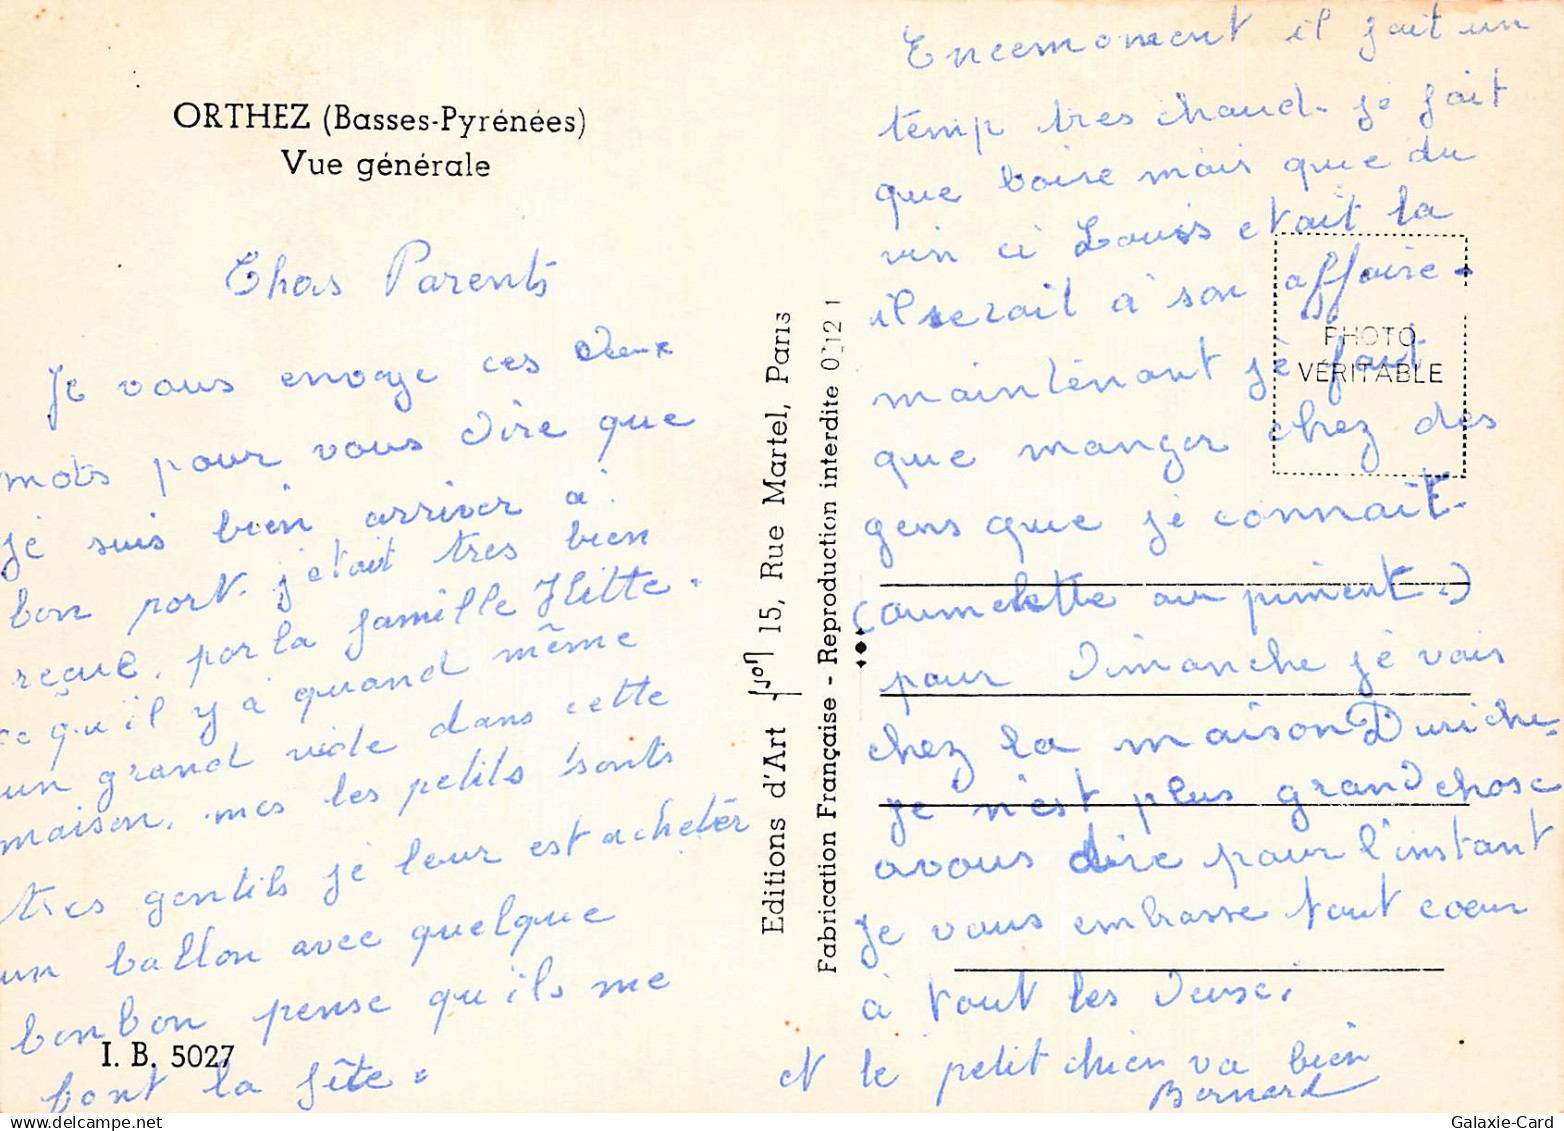 ORTHEZ (Basses-Pyrénées)
Vue générale
Chers Parents
Je vous envoye ces deux
mots pour vous dire que
je suis bien arriver à
bon port. j'etait tres bien
reçue, par la famille Hitte.
ce qu'il y à quand même
un grand vide dans cette
maison. mes les petits sonts
tres gentils je leur est achetér
un ballon avec quelque
bonbon pense qu'ils me
font la fête.
I. B. 5027
Editions d'Art 15, Rue Martel, Paris
Fabrication Française - Reproduction interdite
PHOTO
VÉRITABLE
Encemoment il fait un
temp tres chaud. je fait
que boire mais que du
vin ci Louis etait la
il serait à son affaire.
maintenant je fait
que manger chez des
gens que je connait.
(aumelette au piment.)
pour dimanche je vais
chez la maison Duriche.
je n'est plus grand chose
avous dire pour l'instant
je vous embrasse tout coeur
à tout les deux.
et le petit chien va bien
Bernard
Galaxie-Card